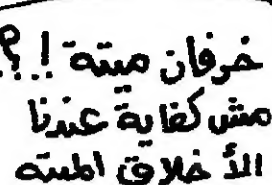 خرفان ميتة !؟.
مش كفاية عندنا
الأخلاق الميته